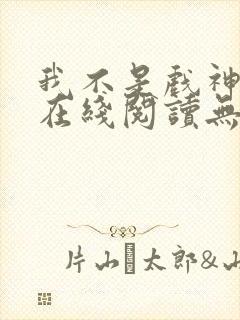 我不是戲神
在綫閱讀無
片山 太郎&山